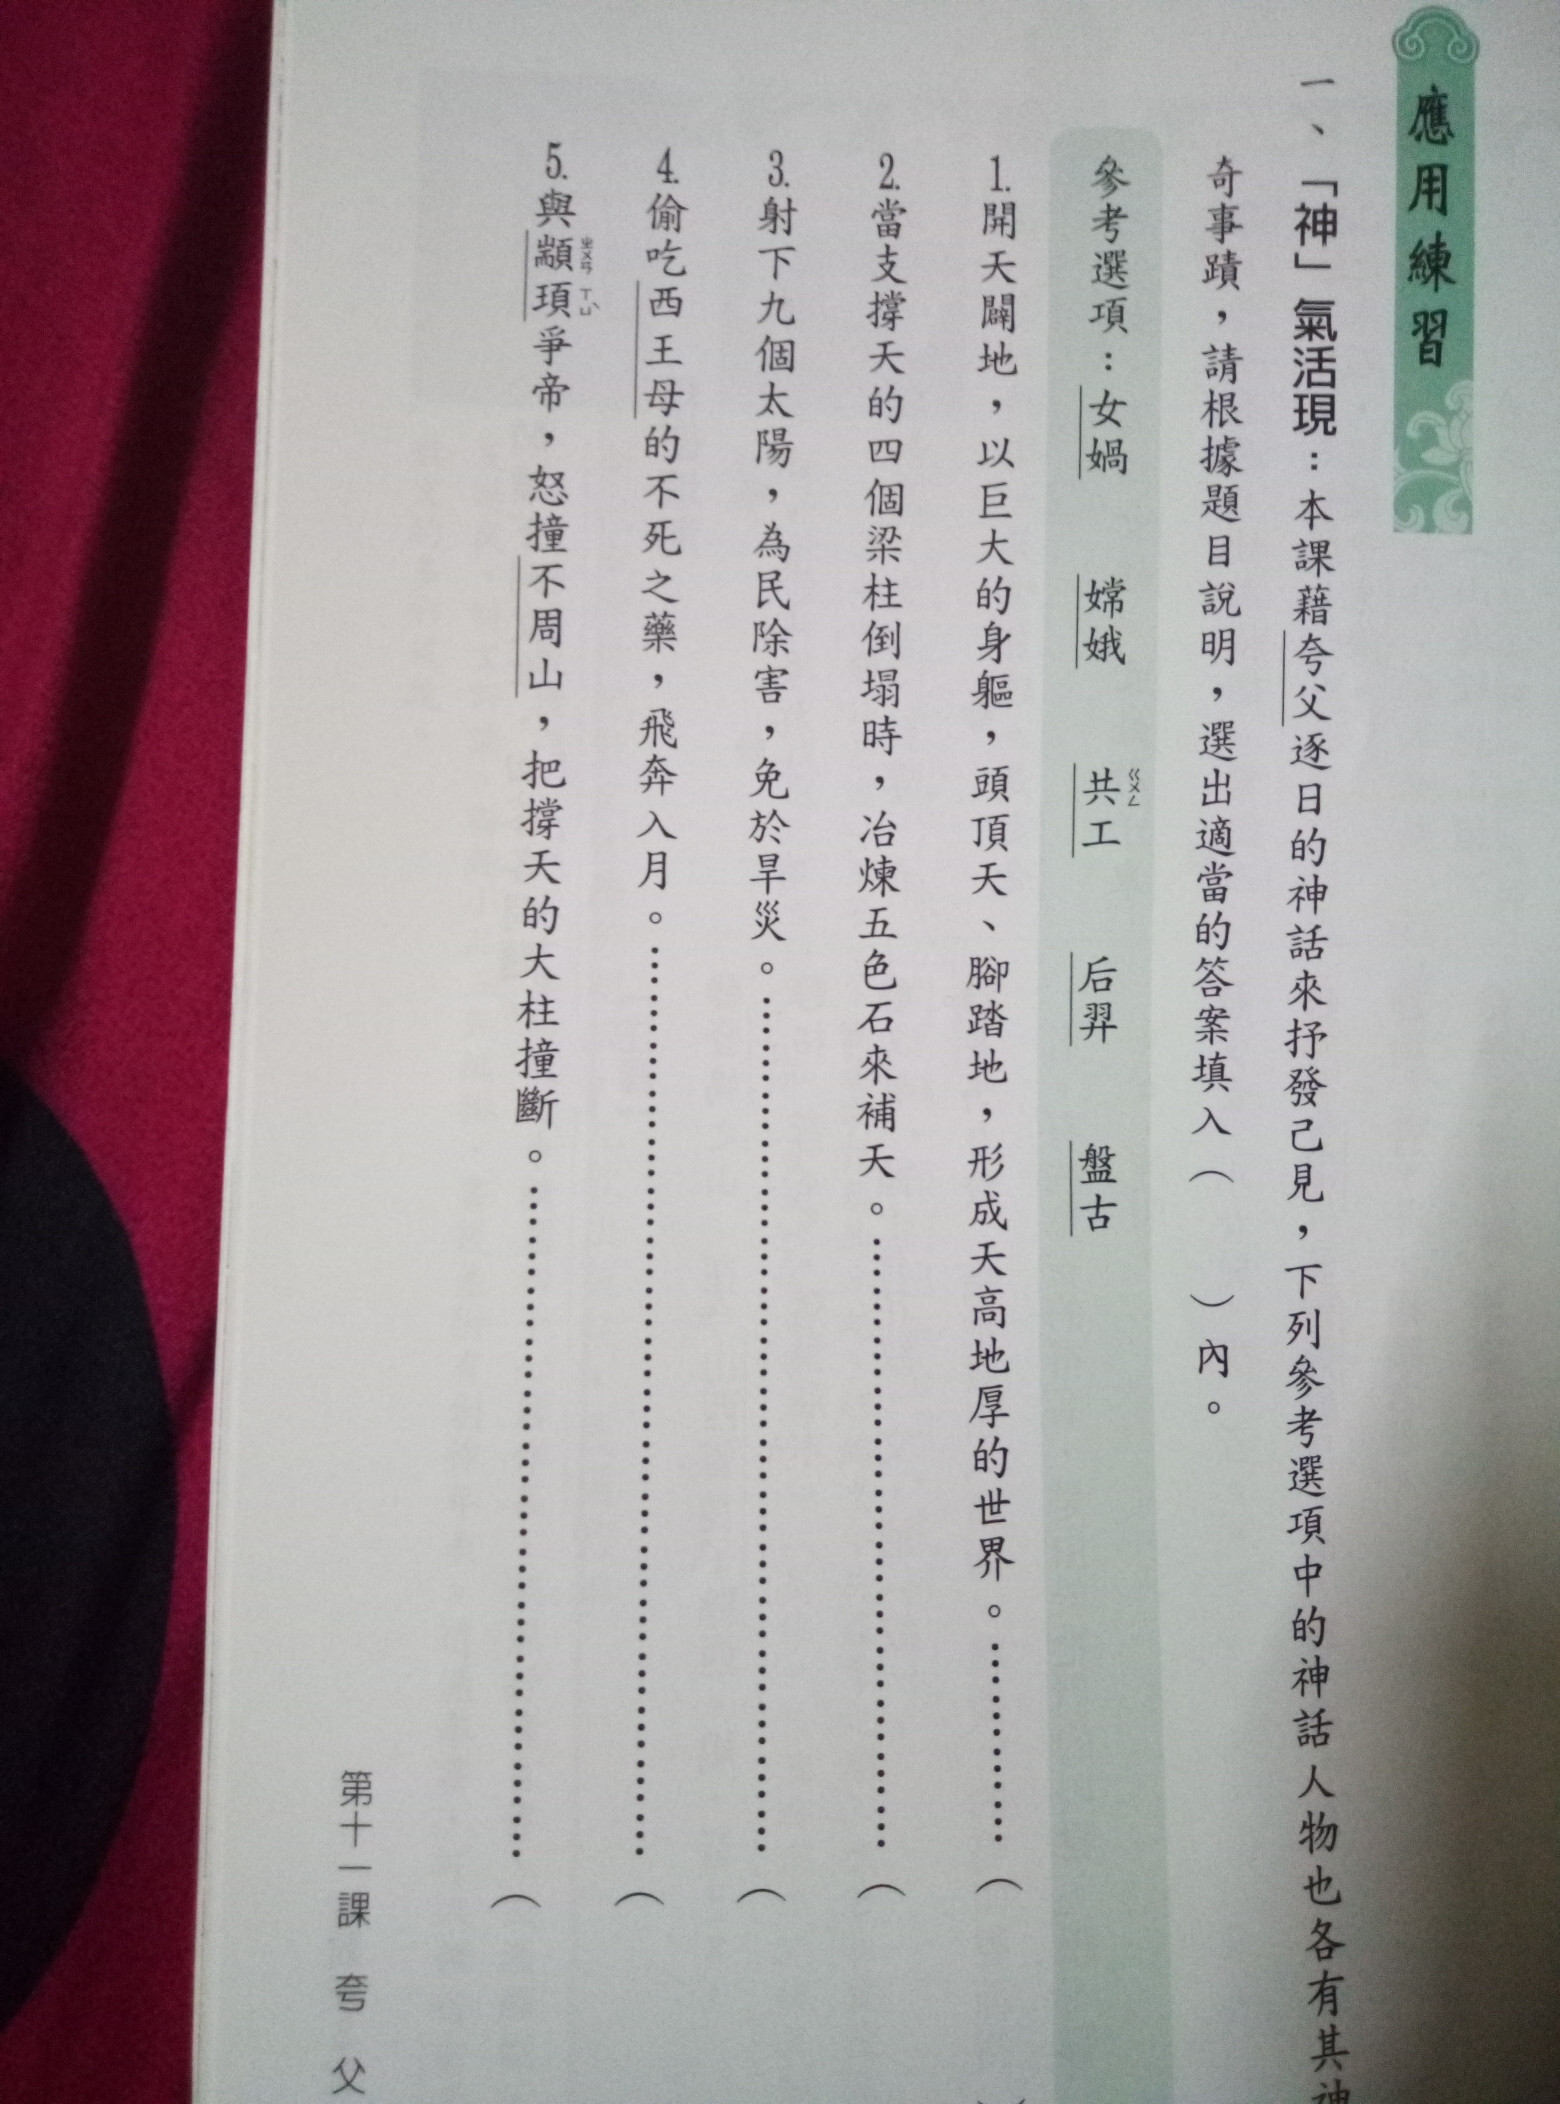 應用練習
一、「神」氣活現：本課藉夸父逐日的神話來抒發己見，下列參考選項中的神話人物也各有其神
奇事蹟，請根據題目說明，選出適當的答案填入（　）內。
參考選項：女媧　嫦娥　共ㄍㄨㄥ工　后羿　盤古
1.開天闢地，以巨大的身軀，頭頂天、腳踏地，形成天高地厚的世界。…………（
2.當支撐天的四個梁柱倒塌時，冶煉五色石來補天。…………（
3.射下九個太陽，為民除害，免於旱災。…………（
4.偷吃西王母的不死之藥，飛奔入月。…………（
5.與顓ㄓㄨㄢ頊ㄒㄩˋ爭帝，怒撞不周山，把撐天的大柱撞斷。…………（
第十一課　夸父